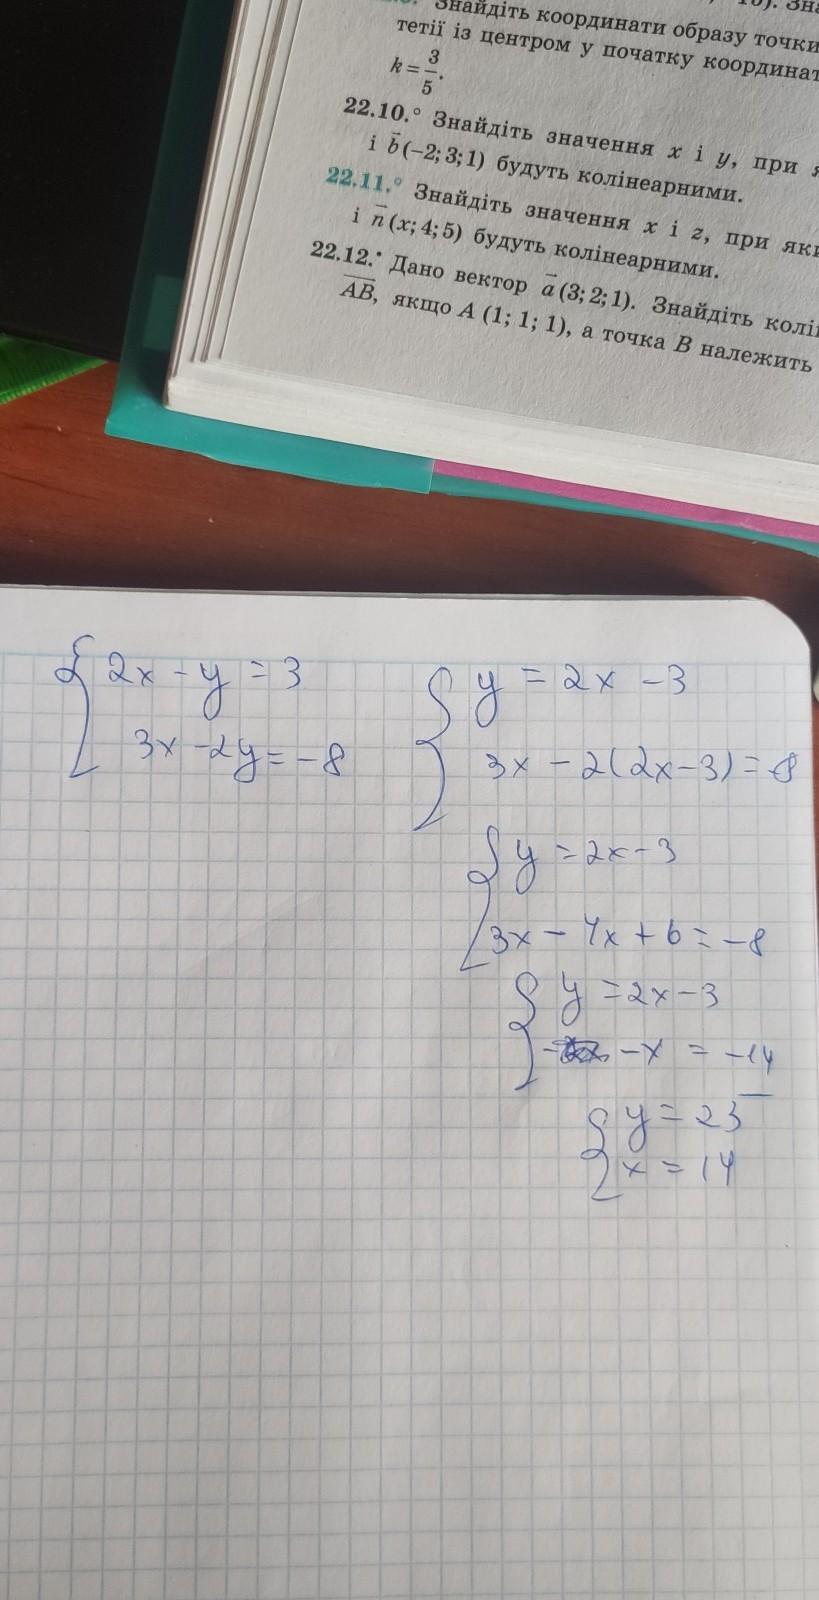 Знайдіть координати образу точки
тетії із центром у початку координат
k = 3/5.
22.10.° Знайдіть значення x і y, при
і b̅ (−2; 3; 1) будуть колінеарними.
22.11.° Знайдіть значення x і z, при яки
і n̅ (x; 4; 5) будуть колінеарними.
22.12.• Дано вектор a̅ (3; 2; 1). Знайдіть колі
AB, якщо A (1; 1; 1), а точка B належить
2x - y = 3
3x - 2y = -8
y = 2x - 3
3x - 2(2x-3) = -8
y = 2x - 3
3x - 4x + 6 = -8
y = 2x - 3
-x = -14
y = 23
x = 14